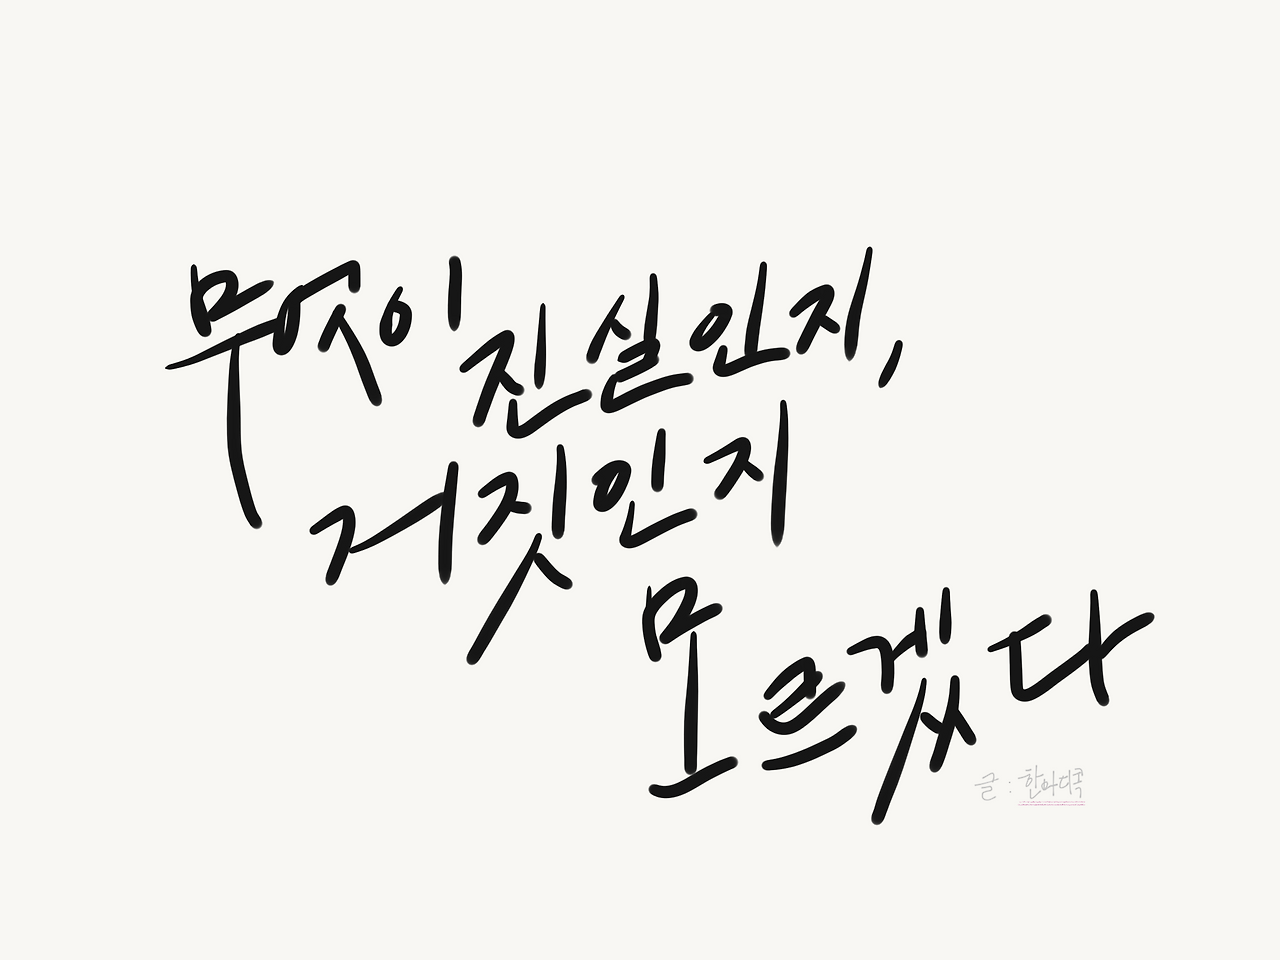 무엇이 진실인지,
거짓인지
모르겠다
글 : 한아디콕